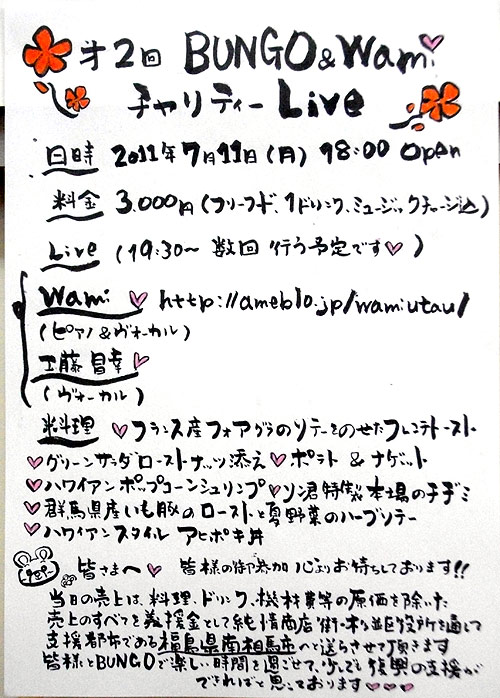 第2回 BUNGO&Wami
チャリティー Live
日時 2011年7月11日(月) 18:00 Open
料金 3,000円(フリーフード、1ドリンク、ミュージックチャージ込)
Live (19:30〜 数回 行う予定です♡)
Wami ♡ http://ameblo.jp/wamiutau/
(ピアノ&ヴォーカル)
工藤 昌幸♡
(ヴォーカル)
料理 ♡フランス産フォアグラのソテーをのせたフレンチトースト
♡グリーンサラダローストナッツ添え♡ポテト & ナゲット
♡ハワイアンポップコーンシュリンプ♡ソン君特製 本場のチヂミ
♡群馬県産いも豚のローストと夏野菜のハーブソテー
♡ハワイアンスタイル アヒポキ丼
皆さまへ♡ 皆様の御参加 心よりお待ちしております!!
当日の売上は、料理、ドリンク、機材費等の原価を除いた
売上のすべてを義援金として純情商店街・杉並区役所を通して
支援都市である福島県南相馬市へと送らさせて頂きます
皆様とBUNGOで楽しい時間を過ごせて、少しでも復興の支援が
できればと思っております